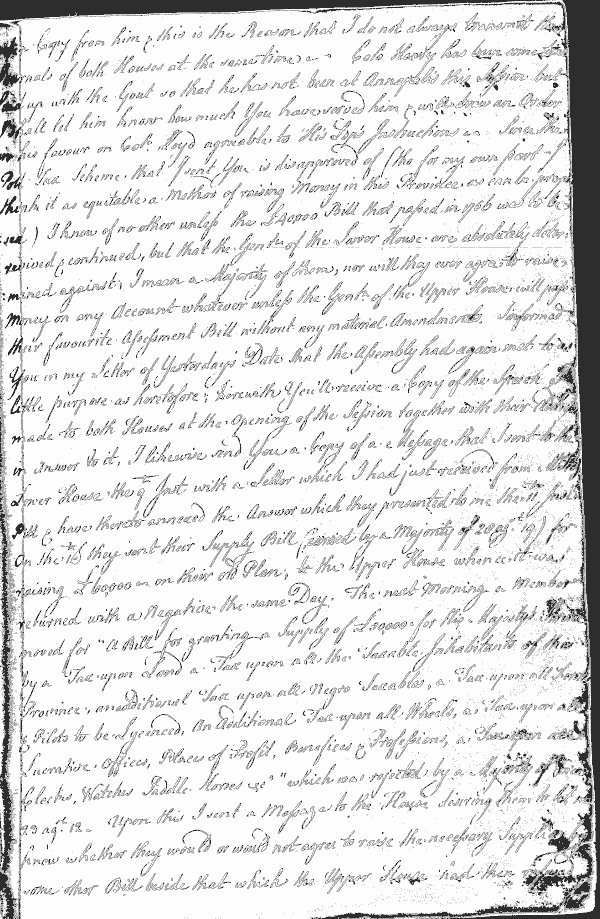 Copy from him & this is the Reason that I do not always transmitt the
Journals of both Houses at the same time. Colo Henry has been some
up with the Gout so that he has not been at Annapolis this Session but
shall let him know how much You have served him & will draw an Order
his favour on Colo. Lloyd agreable to His Lops Instructions. Since the
Poll Tax Scheme that I sent You is disapproved of (tho for my own part I
think it as equitable a Method of raising Money in this Province as can be
) I know of no other unless the £40000 Bill that passed in 1756 was to be
revived & continued, but that the Gentn. of the Lower House are absolutely deter
:mined against; I mean a Majority of them, nor will they ever agree to raise
Money on any Account whatever unless the Gentn. of the Upper House will pass
their favourite Assessment Bill without any material Amendments. I informed
You in my Letter of Yesterday's Date that the Assembly had again met to as
little purpose as heretofore; herewith You'll receive a Copy of the Speech I
made to both Houses at the Opening of the Session together with their
in Answer to it, I likewise send You a Copy of a Message that I sent to the
Lower House the 9th Inst with a Letter which I had just received from Mr
Pitt & have thereto annexed the Answer which they presented to me the 11th
On the they sent their Supply Bill (carried by a Majority of 20 agt 19) for
raising £60000 on their old Plan, to the Upper House whence it was
returned with a Negative the same Day. The next Morning a Member
moved for "A Bill for granting a Supply of for His Majesty's
by a Tax upon Land a Tax upon all the Taxable Inhabitants of this
Province, an additional Tax upon all Negro Taxables, a Tax upon all
& Pilots to be Lycenced, An Additional Tax upon all Wheels, a Tax upon all
Lucrative Offices, Places of Profit, Benefices & Professions, a Tax upon all
Clocks, Watches Saddle Horses &c" which was rejected by a Majority of
23 agt. 12. Upon this I sent a Message to the House desiring them to let me
know whether they would or would not agree to raise the necessary Supplies by
some other Bill beside that which the Upper House had then